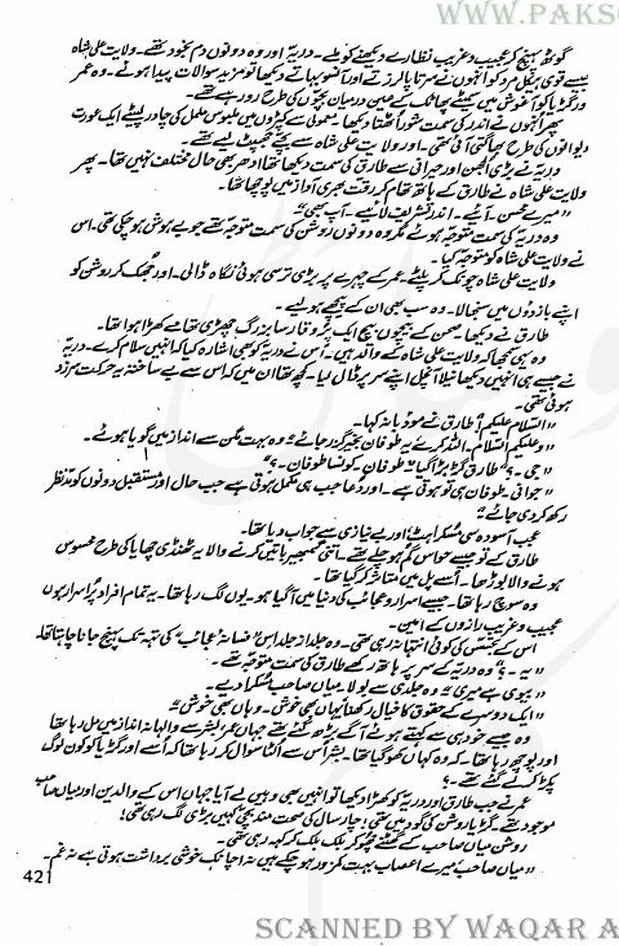 WWW.PAKSO
گوٹھ پہنچ کر عجیب و غریب نظارے دیکھنے کو ملے۔ دریہ اور وہ دونوں دم بخود تھے۔ ولایت علی شاہ
جیسے قوی ہیکل مرد کو انہوں نے سرتاپا لرزتے اور آنسو بہاتے دیکھا تو مزید سوالات پیدا ہوئے۔ وہ عمر
ور گڑیا کو آغوش میں سمیٹے پھاٹک کے عین درمیان بچوں کی طرح رو رہے تھے۔
پھر انہوں نے اندر کی سمت شور اٹھتا دیکھا۔ معمولی سے کپڑوں میں ملبوس ململ کی چادر لپیٹے ایک عورت
دیوانوں کی طرح بھاگتی آئی تھی۔ اور ولایت علی شاہ سے بچے جھپٹ لیے تھے۔
دریہ نے بڑی الجھن اور حیرانی سے طارق کی سمت دیکھا تھا ادھر بھی حال مختلف نہیں تھا۔ پھر
ولایت علی شاہ نے طارق کے ہاتھ تھام کر رقت بھری آواز میں پوچھا تھا۔
"میرے محسن۔ آئیے۔ اندر تشریف لائیے۔ آپ بھی"
وہ دریہ کی سمت متوجہ ہوئے مگر وہ دونوں روشن کی سمت متوجہ تھے جو بے ہوش ہو چکی تھی۔ اس
نے ولایت علی شاہ کو متوجہ کیا۔
ولایت علی شاہ چونک کر پلٹے۔ عمر کے چہرے پر بڑی ترسی ہوئی نگاہ ڈالی۔ اور جھک کر روشن کو
اپنے بازوؤں میں سنبھالا۔ وہ سب بھی ان کے پیچھے ہو لیے۔
طارق نے دیکھا۔ صحن کے بیچوں بیچ ایک پروقار سا بزرگ چھڑی تھامے کھڑا ہوا تھا۔
وہ یہی سمجھا کہ ولایت علی شاہ کے والد ہیں۔ اس نے دریہ کو بھی اشارہ کیا کہ انہیں سلام کرے۔ دریہ
نے جیسے ہی انہیں دیکھا نیلا آنچل اپنے سر پر ڈال لیا۔ کچھ تھا ان میں کہ اس سے بے ساختہ یہ حرکت سرزد
ہوئی تھی۔
"السلام علیکم" طارق نے مودبانہ کہا۔
"وعلیکم السلام۔ اللہ کرے یہ طوفان بخیر گزر جائے" وہ بہت مگن سے انداز میں گویا ہوئے۔
"جی۔؟" طارق گڑبڑا گیا "طوفان۔ کونسا طوفان۔؟"
"جوانی۔ طوفان ہی تو ہوتی ہے۔ اور دعا جب ہی مکمل ہوتی ہے جب حال اور مستقبل دونوں کو مدنظر
رکھ کر دی جائے"
عجب آسودہ سی مسکراہٹ اور بے نیازی سے جواب دیا تھا۔
طارق کے تو جیسے حواس گم ہو چلے تھے۔ اتنی گمبھیر باتیں کرنے والا یہ ٹھنڈی چھایا کی طرح محسوس
ہونے والا بوڑھا۔ اسے پل میں متاثر کر گیا تھا۔
وہ سوچ رہا تھا۔ جیسے اسرار و عجائب کی دنیا میں آ گیا ہو۔ یوں لگ رہا تھا۔ یہ تمام افراد پراسرار ہوں
عجیب و غریب رازوں کے امین۔
اس کے تجسس کی کوئی انتہا نہ رہی تھی۔ وہ جلد از جلد اس "فسانہ عجائب" کی تہہ تک پہنچ جانا چاہتا تھا۔
"یہ۔؟" وہ دریہ کے سر پر ہاتھ رکھے طارق کی سمت متوجہ تھے۔
"بیوی ہے میری" وہ جلدی سے بولا۔ میاں صاحب مسکرا دیے۔
"ایک دوسرے کے حقوق کا خیال رکھنا یہاں بھی خوش۔ وہاں بھی خوش"
وہ جیسے خود ہی سے کہتے ہوئے آگے بڑھ گئے تھے جہاں عمر بشر سے والہانہ انداز میں مل رہا تھا
اور پوچھ رہا تھا۔ کہ وہ کہاں کھو گیا تھا۔ بشر اس سے الٹا سوال کر رہا تھا کہ اسے اور گڑیا کو کون لوگ
پکڑ کر لے گئے تھے۔؟
عمر نے جب طارق اور دریہ کو کھڑا دیکھا تو انہیں بھی وہیں لے آیا جہاں اس کے والدین اور میاں صاحب
موجود تھے۔ گڑیا روشن کی گود میں تھی! چار سال کی صحت مند بچی کہیں بڑی لگ رہی تھی!
روشن میاں صاحب کے گھٹنے چھو کر بلک بلک کر کہہ رہی تھی۔
"میاں صاحب میرے اعصاب بہت کمزور ہو چکے ہیں نہ اچانک خوشی برداشت ہوتی ہے نہ غم۔
421
SCANNED BY WAQAR A